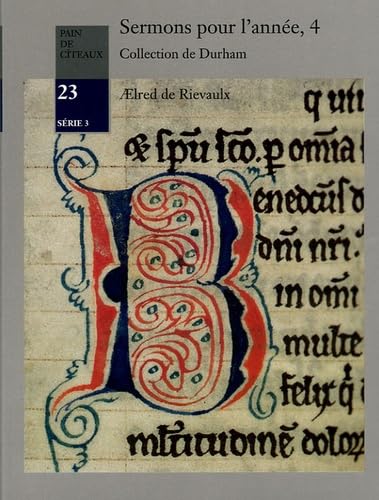 PAIN
DE
CÎTEAUX
23
SÉRIE 3
Sermons pour l'année, 4
Collection de Durham
Ælred de Rievaulx
q uti
& spũ sc̃o. p omnia
Benedictus d
dñi nr̃i.
in omi
multe
felix q̃
multitudinẽ dolor